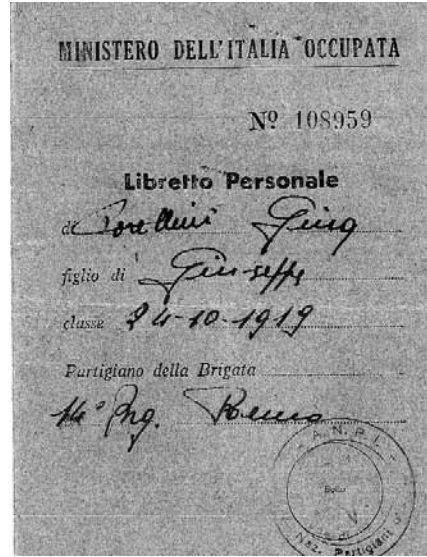 MINISTERO DELL'ITALIA OCCUPATA
Nº 108959
Libretto Personale
di
figlio di Giuseppe
classe 24-10-1919
Partigiano della Brigata
14ª Brg.
A.N.P.I.
Bollo
Naz. Partigiani